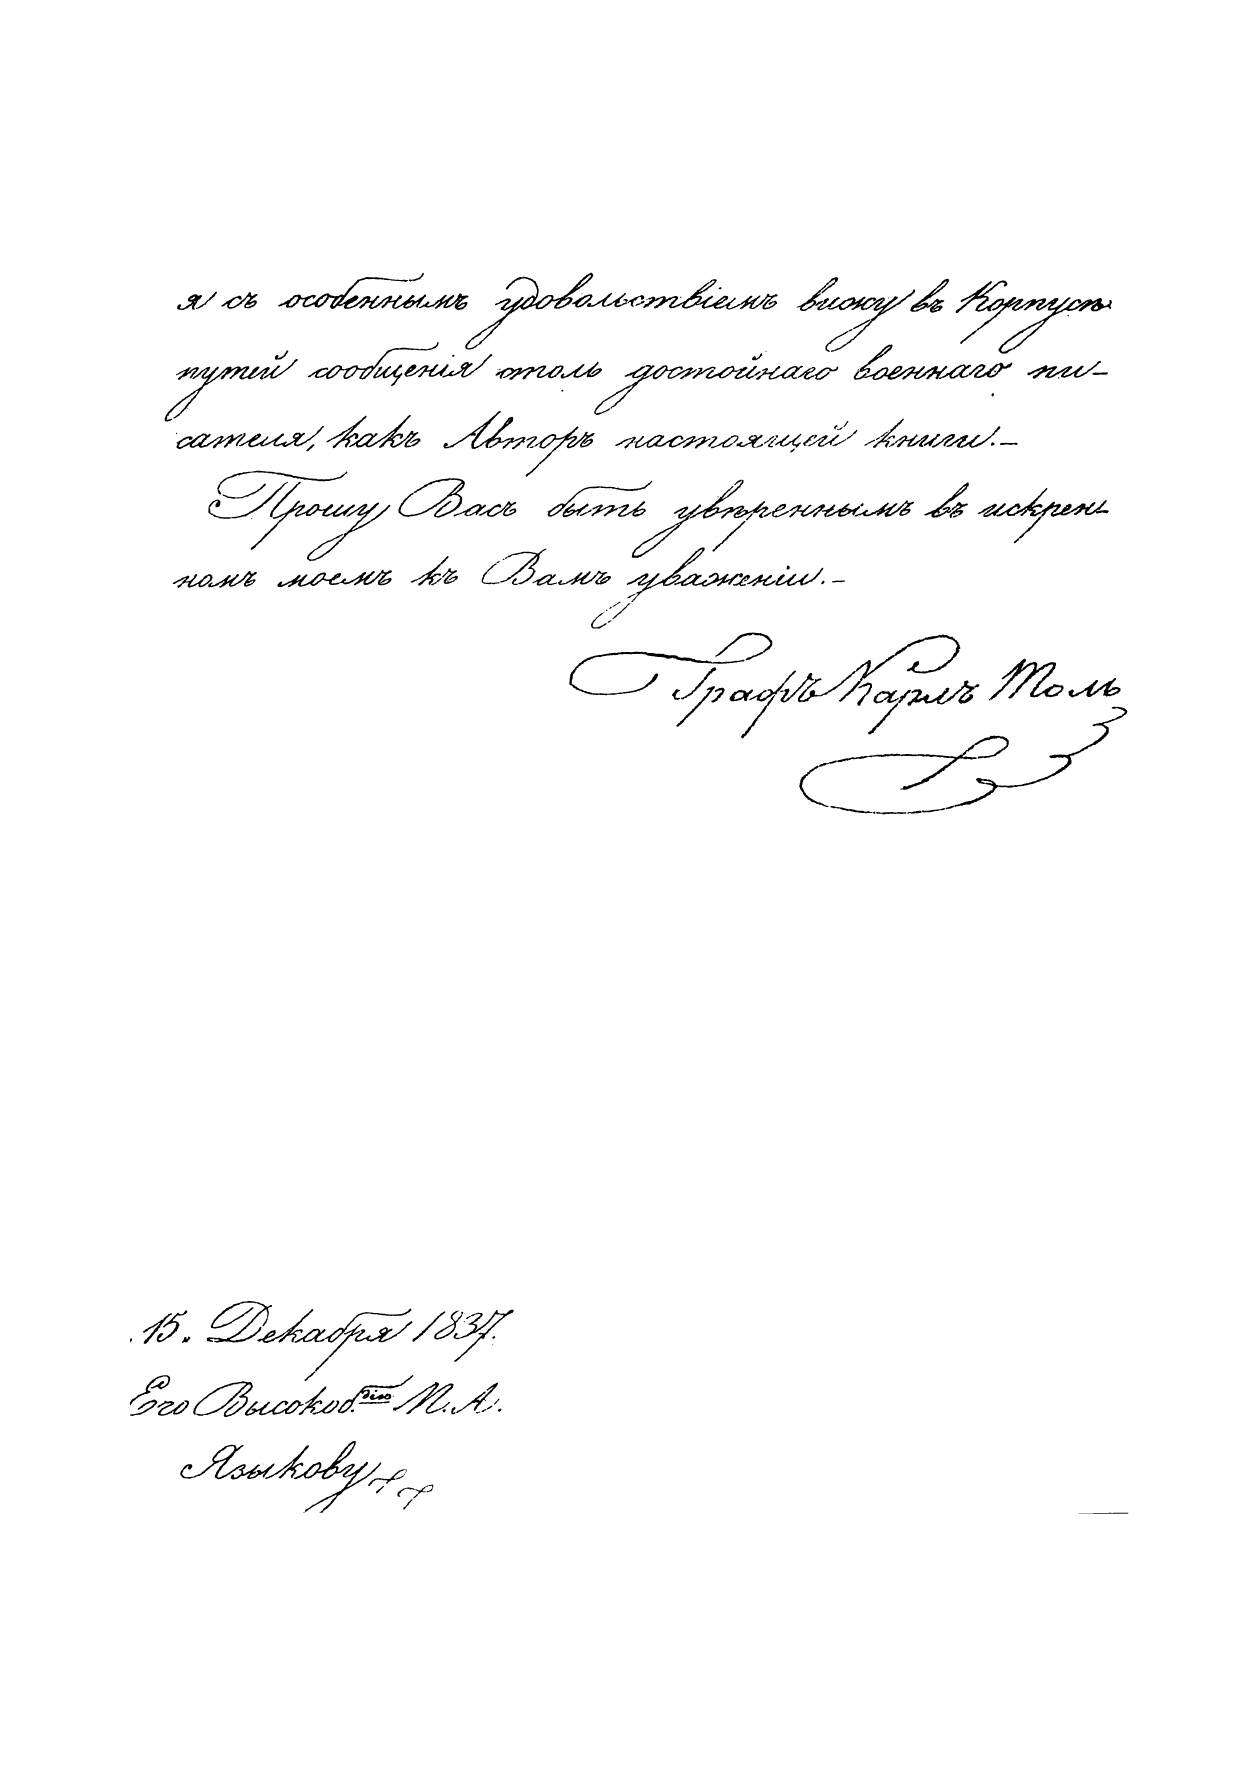 я съ особеннымъ удовольствіемъ вижу въ Корпусѣ
путей сообщенія столь достойнаго военнаго пи-
сателя, какъ Авторъ настоящей книги.-
Прошу Васъ быть увѣреннымъ въ искрен-
номъ моемъ къ Вамъ уваженіи.-
Графъ Карлъ Толь
15. Декабря 1837.
Его Высокоб.дію П. А.
Языкову